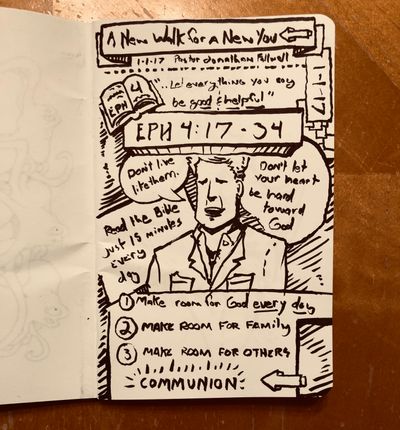 A New Walk for a New You
1-1-17 Pastor Jonathan Falwell
1-1-17
EPH 4
"..Let everything you say
be good & helpful"
EPH 4:17-34
Don't live
like them.
Don't let
your heart
be hard
toward
God
Read the Bible
just 15 minutes
every
day
1 Make room for God every day
2 MAKE ROOM FOR FAMILY
3 MAKE ROOM FOR OTHERS
COMMUNION